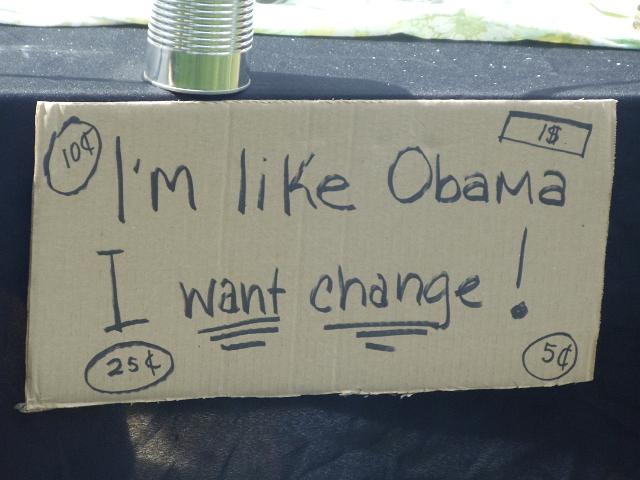 10¢
1$
I'm like Obama
I want change!
25¢
5¢